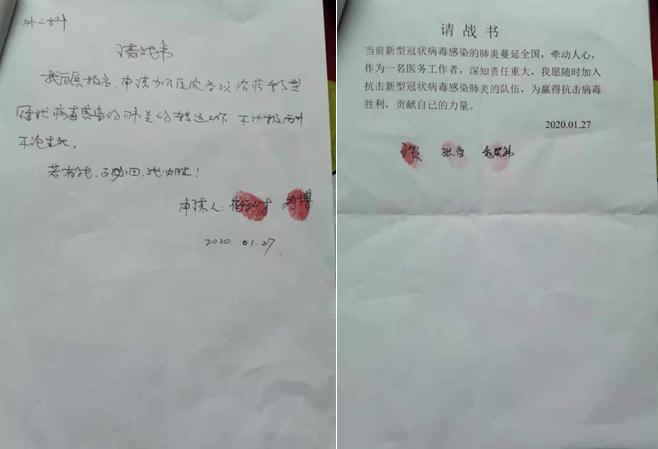 外二科
请战书
我自愿报名，申请加入医院各项治疗新型
冠状病毒感染的肺炎的救治工作，不计报酬
不论生死。
若有战，召必回，战必胜！
申请人：
2020.01.27
请战书
当前新型冠状病毒感染的肺炎蔓延全国，牵动人心，
作为一名医务工作者，深知责任重大，我愿随时加入
抗击新型冠状病毒感染肺炎的队伍，为赢得抗击病毒
胜利，贡献自己的力量。
2020.01.27